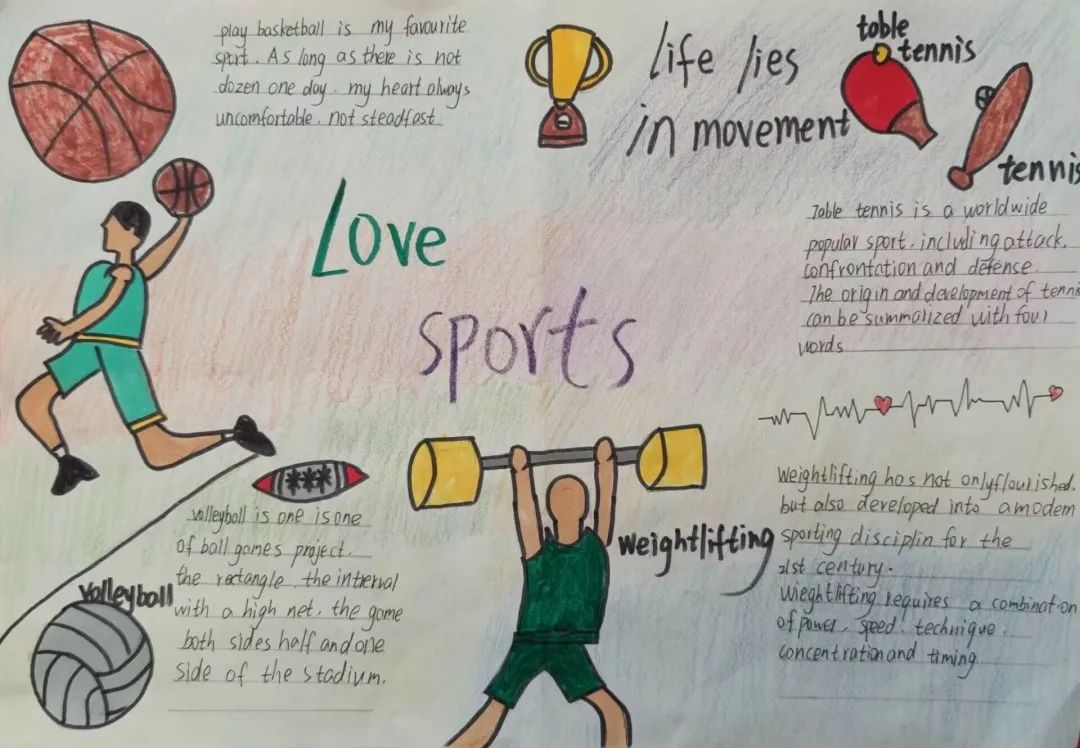 play basketball is my favourite
sport. As long as there is not
dozen one day. my heart always
uncomfortable. not steadfast.
life lies
in movement
table
tennis
tennis
Love
sports
Table tennis is a worldwide
popular sport. including attack.
confrontation and defense.
The origin and development of tennis
can be summalized with foul
words
weightlifting has not onlyflourished.
but also developed into a modem
sporting disciplin for the
21st century.
wieghtlifting requires a combination
of power, speed. technique.
concentration and timing
weightlifting
volleyball is one is one
of ball games project.
the rectangle. the intrerval
with a high net. the game
both sides half and one
side of the stadium.
volleyball